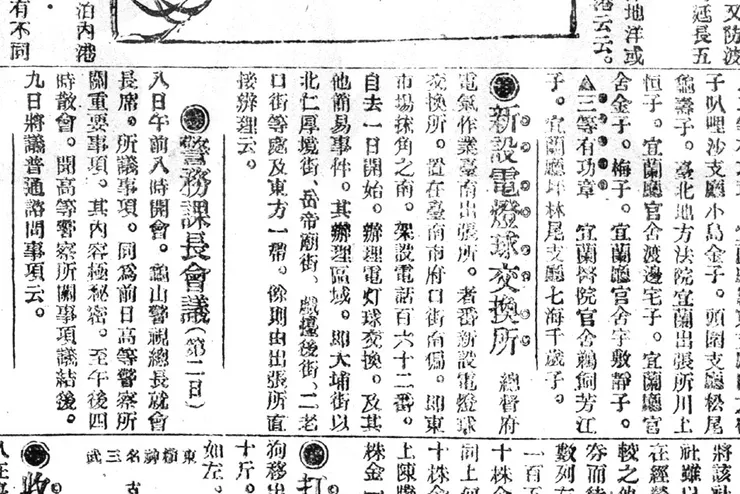 又防波
延長五
地洋或
港云云。
泊內港
有不同
子叭哩沙支廳小島金子。頭圍支廳松尾
龜壽子。臺北地方法院宜蘭出張所川上
恒子。宜蘭廳官舍渡邊宅子。宜蘭廳官
舍金子。梅子。宜蘭廳官舍宇敷靜子。
▲三等有功章 宜蘭醫院官舍鵜飼芳江
子。宜蘭廳坪林尾支廳七海千歲子。
◉新設電燈球交換所 總督府
電氣作業臺南出張所。者番新設電燈球
交換所。置在臺南市府口街南偏。即東
市場抹角之南。架設電話百六十二番。
自去一日開始。辦理電灯球交換。及其
他簡易事件。其辦理區域。即大埔街以
北仁厚境街、岳帝廟街、戲檯後街、二老
口街等處及東方一帶。餘則由出張所直
接辦理云。
◉警務課長會議(第二日)
八日午前八時開會。龜山警視總長就會
長席。所議事項。同爲前日高等警察所
關重要事項。其內容極秘密。至午後四
時散會。聞高等警察所關事項議結後。
九日將議普通諮問事項云。
將該社
社難以
在經營
較之他
夯而綣
數列左
一百五
十株金
同上何
十株金
上陳
株金一
◉打
狗移出
十斤。
如左。
東
名三武